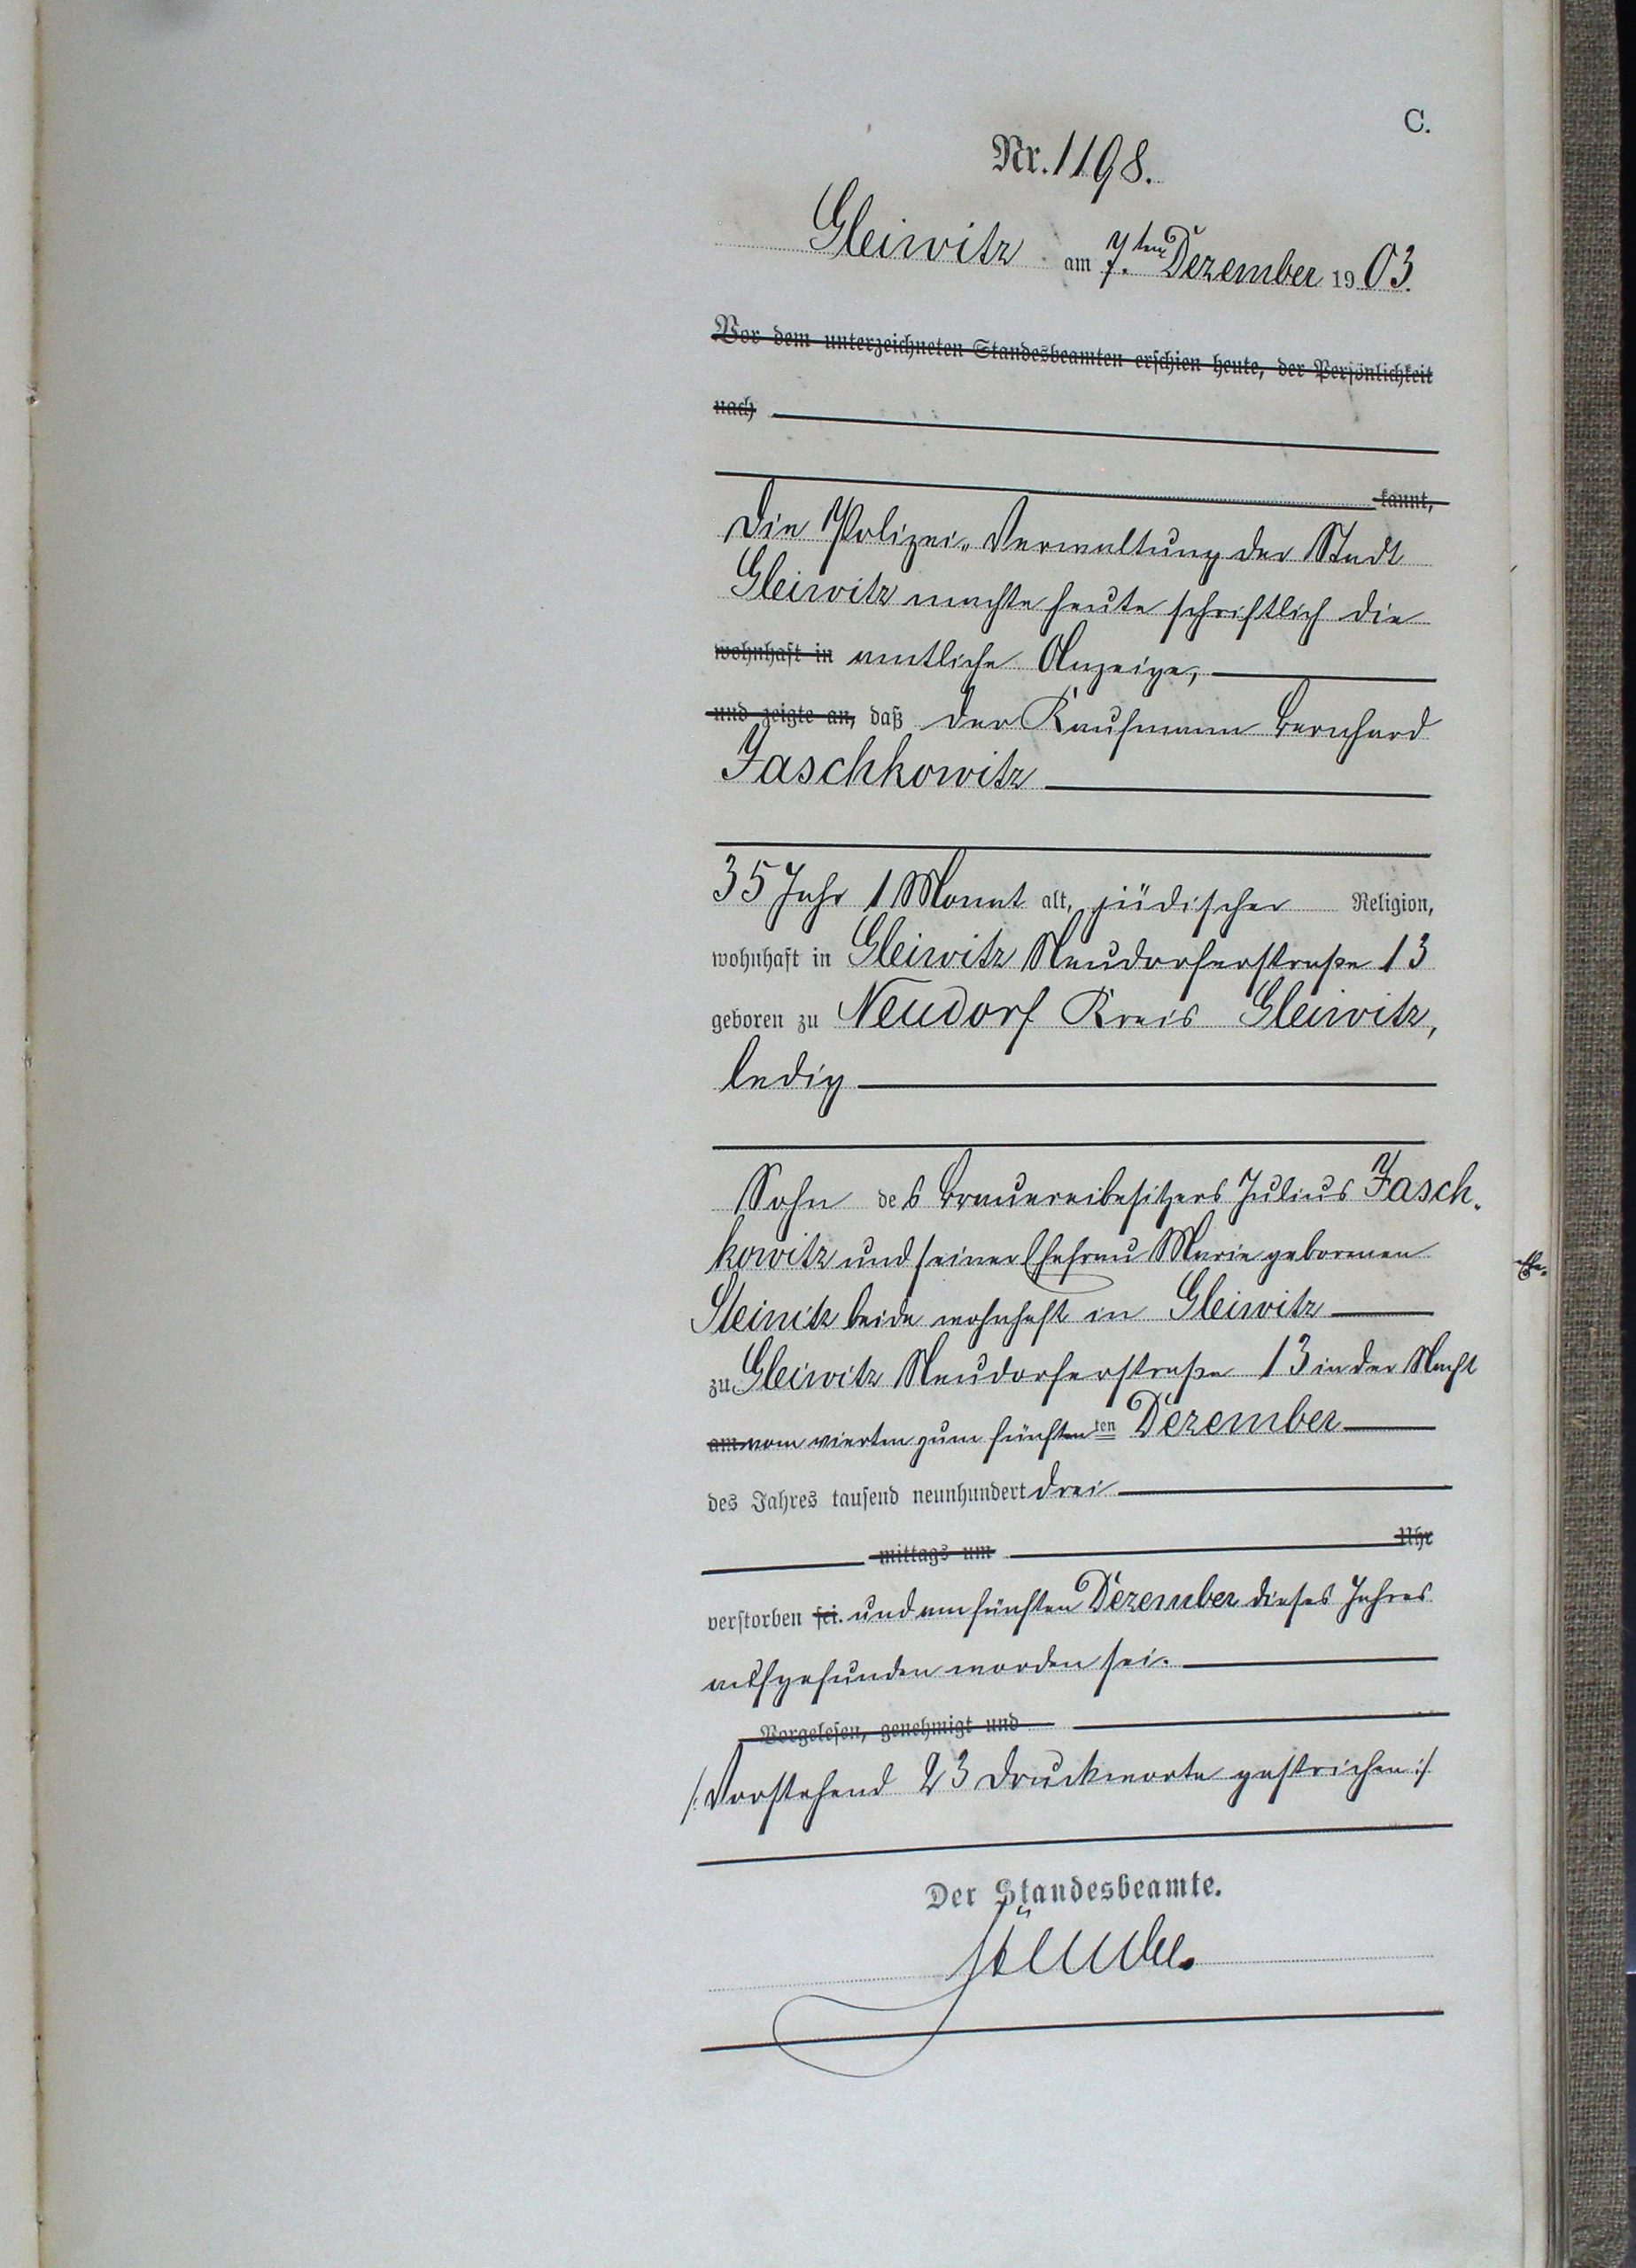 C.
Nr. 1198.
Gleiwitz am 7. ten Dezember 1903.
Vor dem unterzeichneten Standesbeamten erschien heute, der Persönlichkeit
nach
kannt,
Die Polizei-Verwaltung der Stadt
Gleiwitz machte heute schriftlich die
wohnhaft in amtliche Anzeige,
und zeigte an, daß der Kaufmann Bernhard
Jaschkowitz
35 Jahr 1 Monat alt, jüdischer Religion,
wohnhaft in Gleiwitz Neudorferstraße 13
geboren zu Neudorf Kreis Gleiwitz,
ledig
Sohn des Brauereibesitzers Julius Jasch-
kowitz und seiner Ehefrau Marie geborenen
Steinitz beide wohnhaft in Gleiwitz
zu Gleiwitz Neudorferstraße 13 in der Nacht
am vom vierten zum fünften ten Dezember
des Jahres tausend neunhundert drei
mittags um Uhr
verstorben sei. und am fünften Dezember dieses Jahres
aufgefunden worden sei.
Vorgelesen, genehmigt und
/: Vorstehend 23 Druckworte gestrichen :/
Der Standesbeamte.